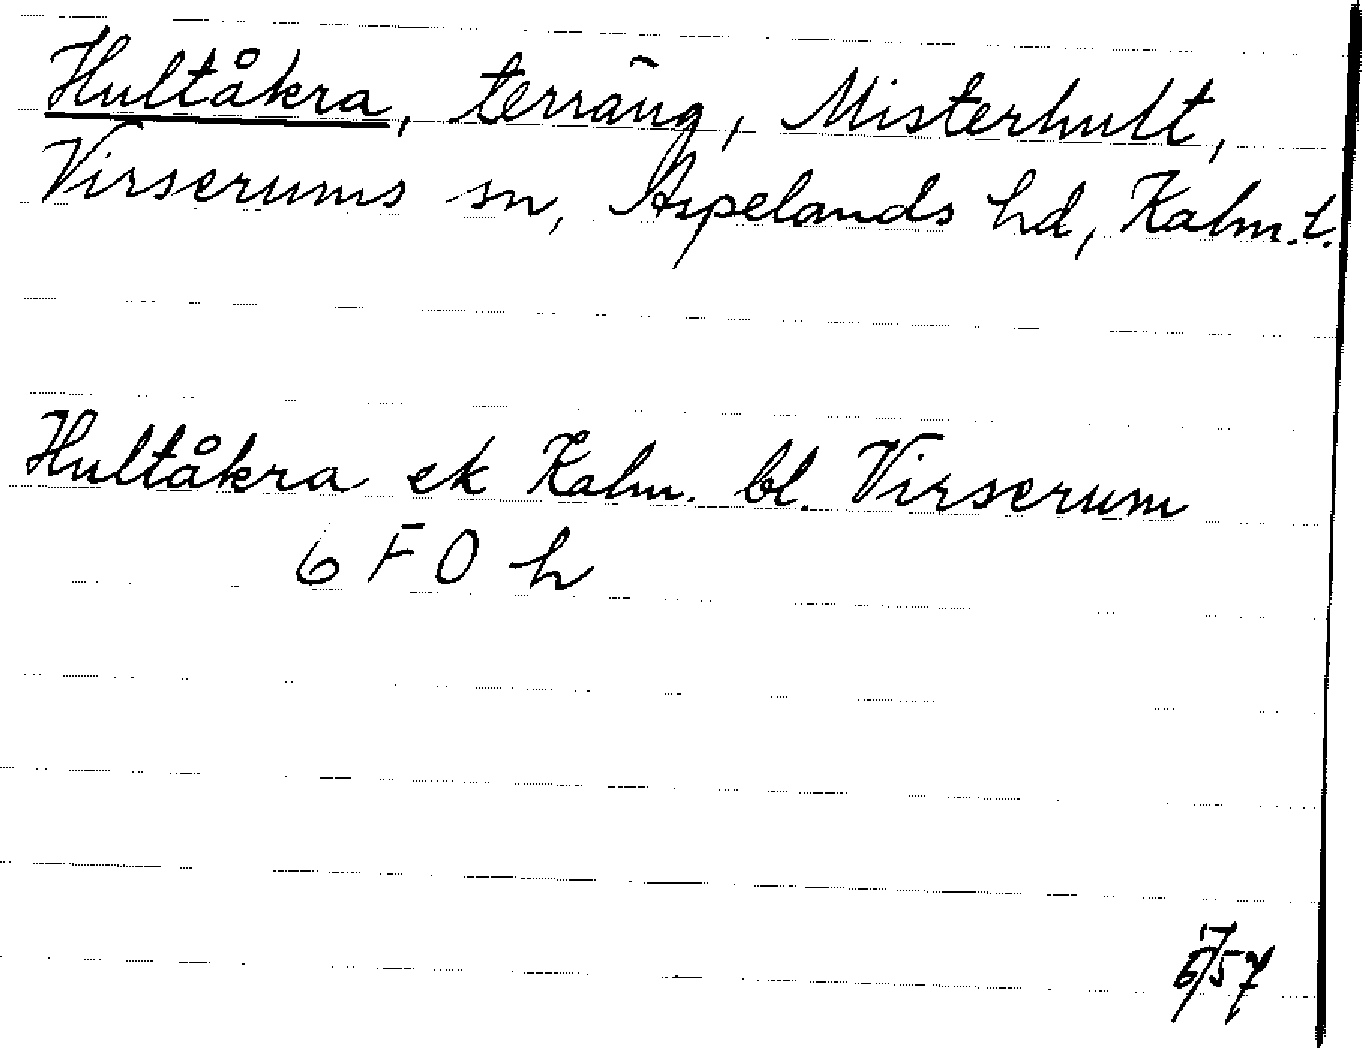 Hultåkra, terräng, Misterhult,
Virserums sn, Aspelands hd, Kalm. l.
Hultåkra ek Kalm. bl. Virserum
6 F O h